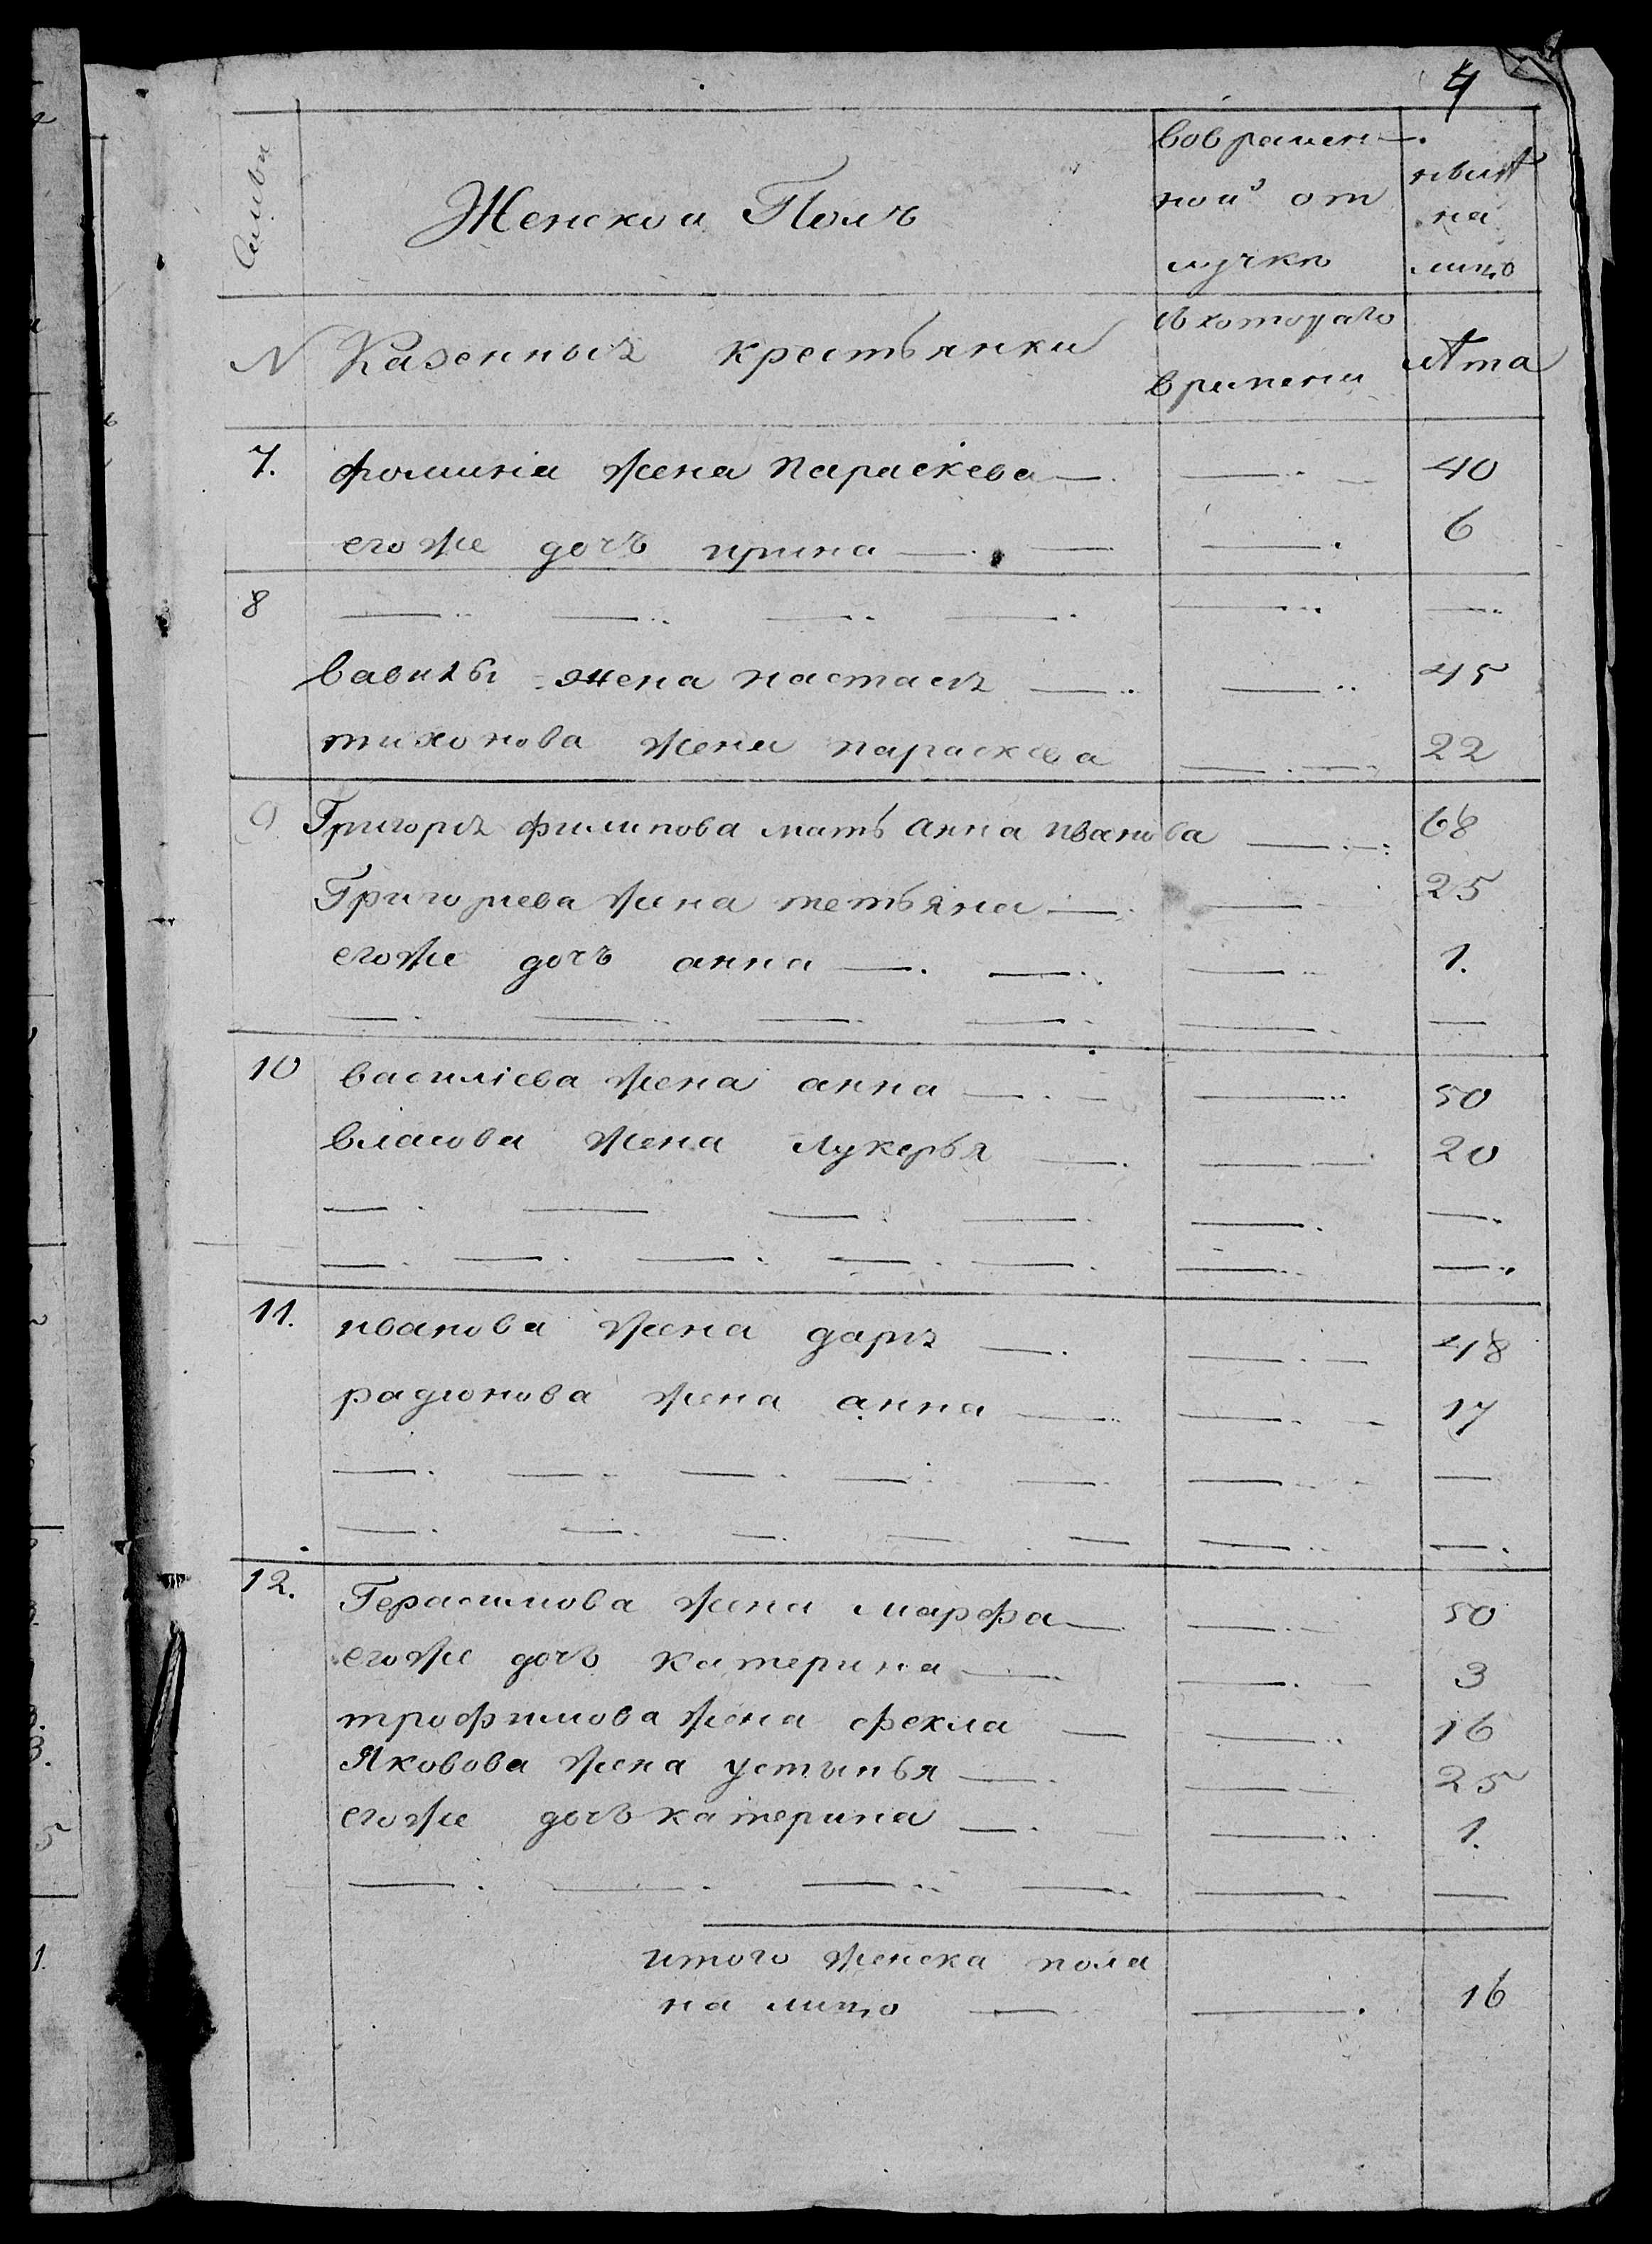 4
Семьи
Женскои Полъ
вовремен
ной от
лучке
нынѣ
на
лицо
N Казенныя крестьянки
с котораго
времени
лѣта
7. фомина жена параскева 40
егоже дочь ирина 6
8
вавилы жена настася 45
тихонова жена параскева 22
9 Григоря филипова мать анна иванова 68
Григорьева жена тетьяна 25
егоже дочь анна 1.
10 василиева жена анна 50
власова жена лукерья 20
11. иванова жена даря 48
радионова жена анна 17
12. Герасимова жена марфа 50
егоже дочь катерина 3
трофимова жена фекла 16
Яковова жена устинья 25
егоже дочь катерина 1.
итого женска пола
на лицо 16